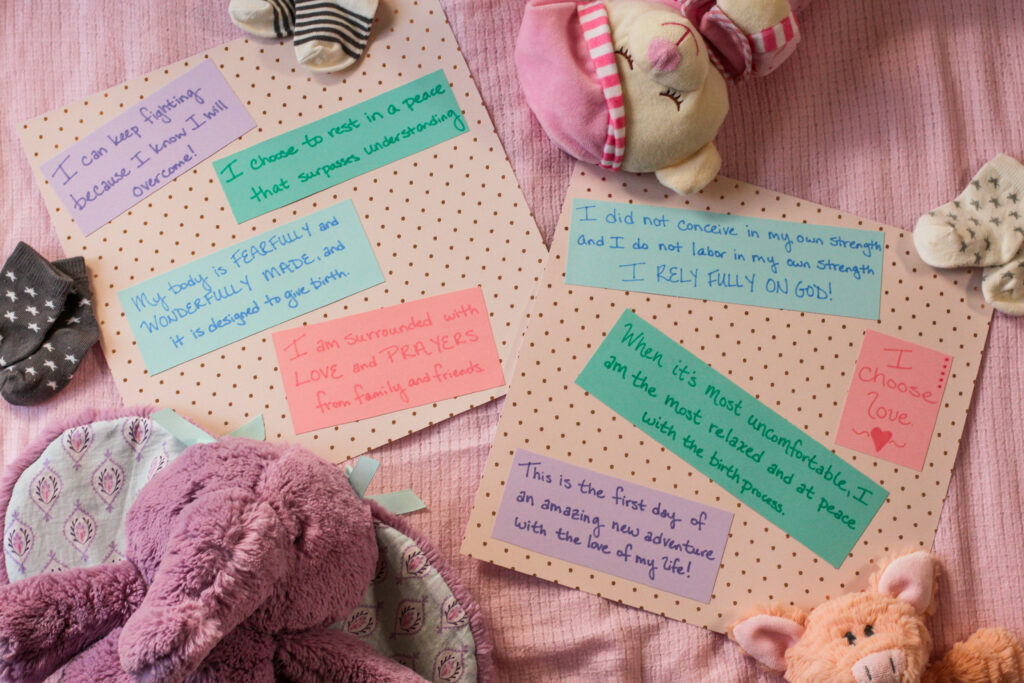 I can keep fighting
because I know I will
overcome!
I choose to rest in a peace
that surpasses understanding
My body is FEARFULLY and
WONDERFULLY MADE, and
it is designed to give birth.
I am surrounded with
LOVE and PRAYERS
from family and friends.
I did not conceive in my own strength
and I do not labor in my own strength
I RELY FULLY ON GOD!
When it's most uncomfortable, I
am the most relaxed and at peace
with the birth process.
I
choose
love.
This is the first day of
an amazing new adventure
with the love of my life!